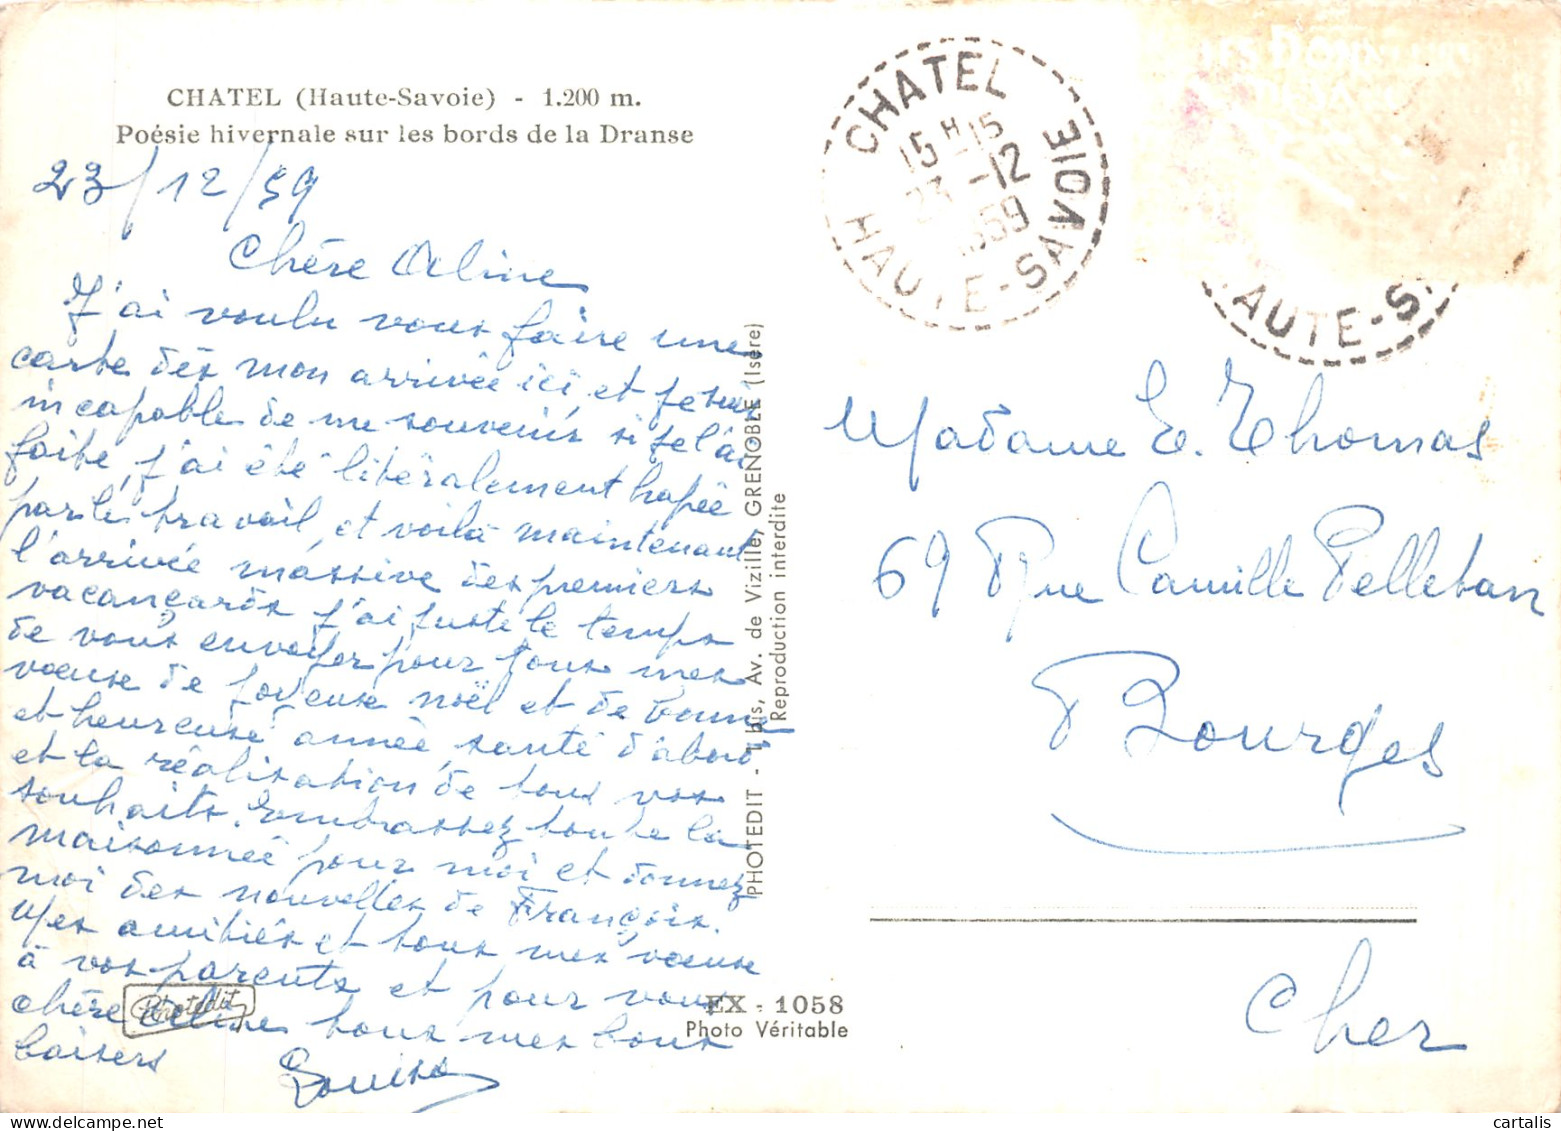 CHATEL (Haute-Savoie) - 1.200 m.
Poésie hivernale sur les bords de la Dranse
23/12/59
Chère Céline
J'ai voulu vous faire une
carte dès mon arrivée ici, et je suis
incapable de me souvenir si je l'ai
faite, j'ai été littéralement hapée
par le travail, et voilà maintenant
l'arrivée massive des premiers
vacançards j'ai juste le temps
de vous envoyer pour tous mes
vœux de joyeuse noël et de bonne
et heureuse année, santé d'abord,
et la réalisation de tous vos
souhaits. Embrassez toute la
maisonnée pour moi et donnez
moi des nouvelles de François.
Mes amitiés et tous mes vœux
à vos parents et pour vous
chère Céline tous mes bons
baisers Louise
Photedit
PHOTEDIT - 1 bis, Av. de Vizille, GRENOBLE (Isère)
Reproduction interdite
EX - 1058
Photo Véritable
CHATEL
15 H 15
23 -12
1959
HAUTE-SAVOIE
HAUTE-S
Madame E. Thomas
69 Rue Camille Pelletan
Bourges
Cher
cartalis